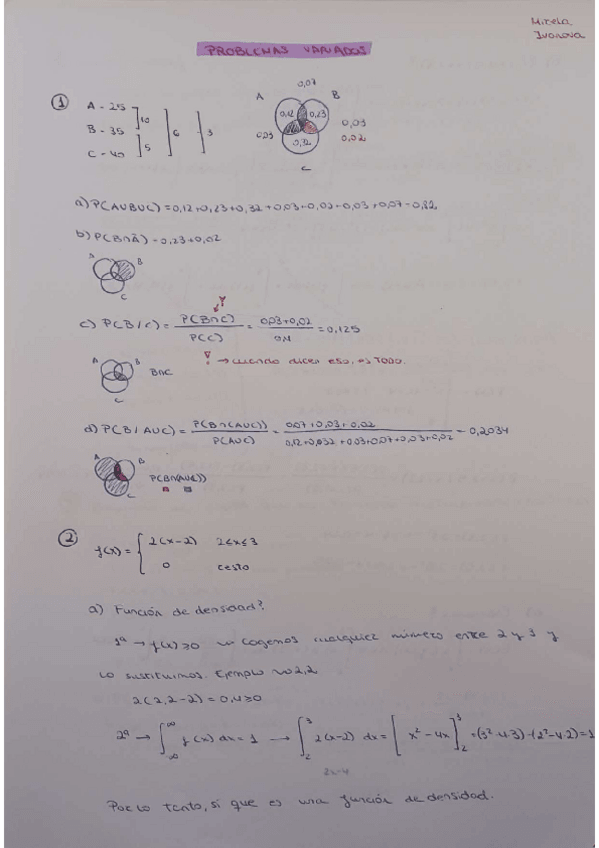 Mirela
Ivanova
PROBLEMAS VARIADOS
1
A - 25
B - 35
C - 40
10
5
6
3
0,07
A
B
0,12
0,23
0,03
0,32
0,03
0,02
C
a) P(AUBUC) = 0,12 + 0,23 + 0,32 + 0,03 + 0,02 + 0,03 + 0,07 = 0,82
b) P(B∩Ā) = 0,23 + 0,02
A
B
C
c) P(B/C) = P(B∩C) / P(C) = 0,03 + 0,02 / 0,4 = 0,125
→ cuando dicen eso, es TODO.
A
B
C
B∩C
d) P(B/AUC) = P(B∩(AUC)) / P(AUC) = 0,07 + 0,03 + 0,02 / 0,12 + 0,032 + 0,03 + 0,07 + 0,03 + 0,02 = 0,2034
A
B
C
P(B∩(AUC))
2
f(x) = { 2(x-2) 2≤x≤3
0 resto
a) Función de densidad?
1ª → f(x) ≥ 0 Cogemos cualquier número entre 2 y 3 y
lo sustituimos. Ejemplo 2,2
2(2,2-2) = 0,4 ≥ 0
2ª → ∫ f(x) dx = 1 → ∫₂³ 2(x-2) dx = [x² - 4x]₂³ = (3² - 4·3) - (2² - 4·2) = 1
2x-4
Por lo tanto, si que es una función de densidad.